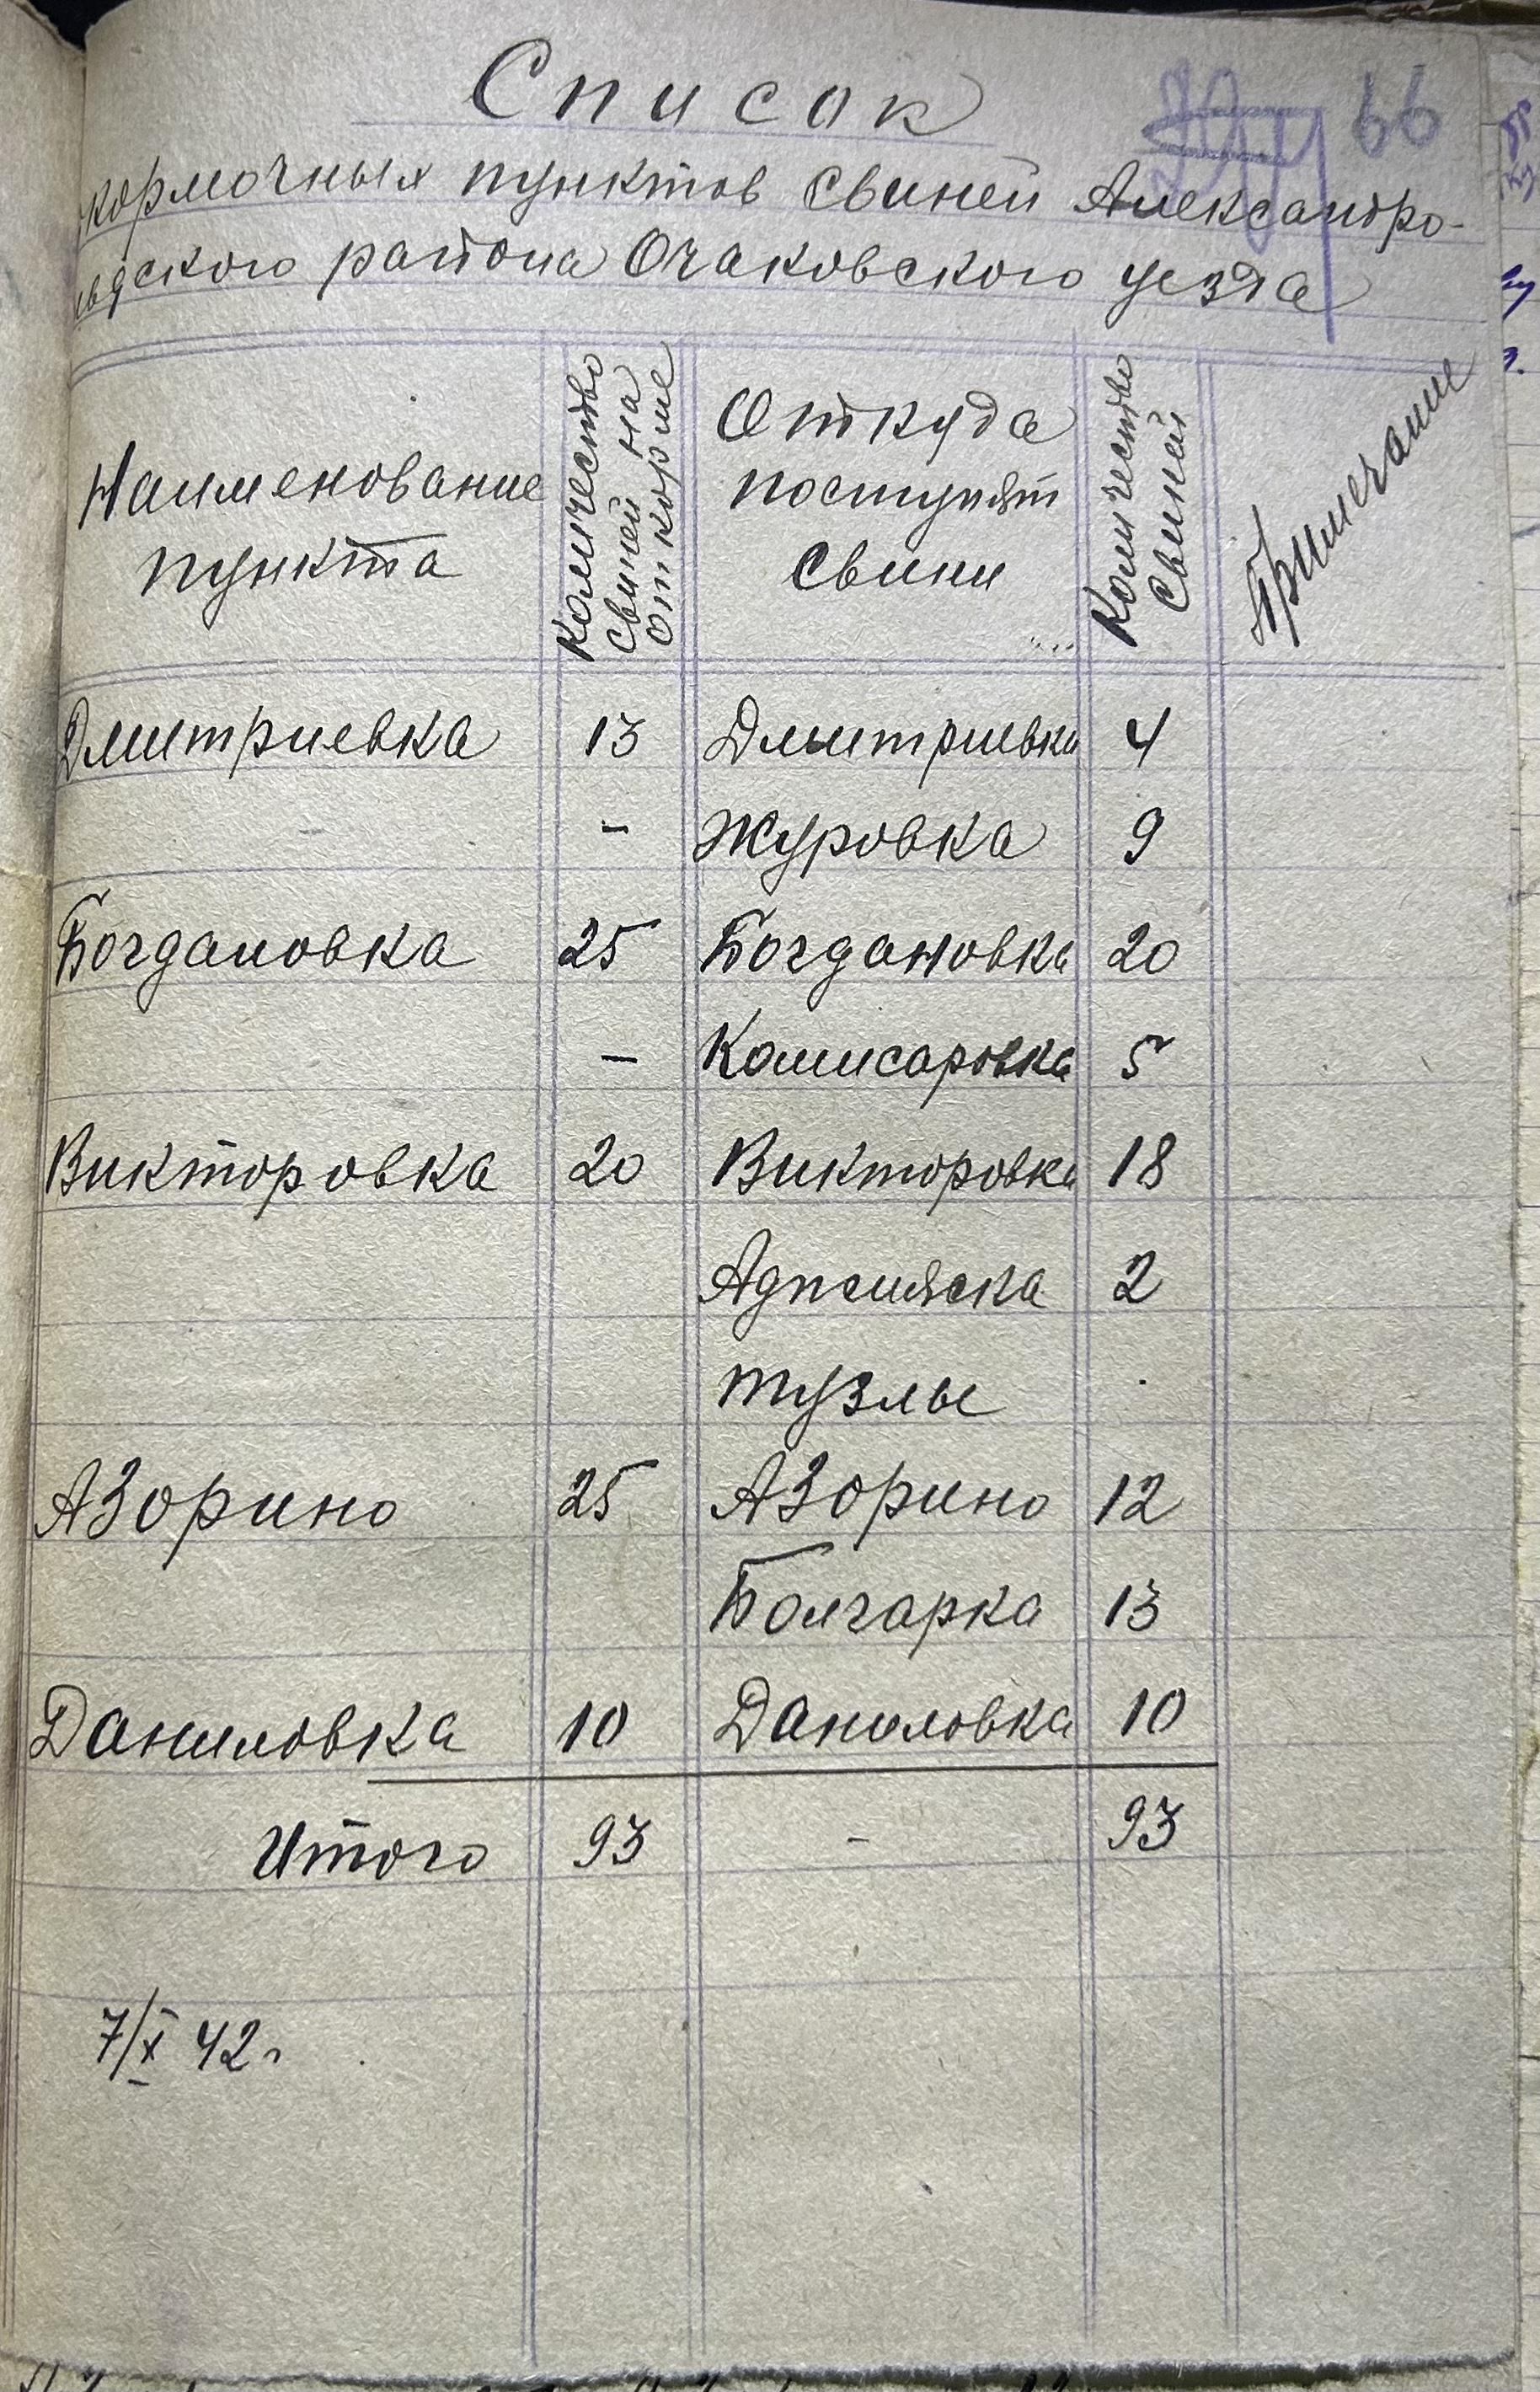 Список
66
кормочных пунктов свиней Александро-
ского района Очаковского уезда
Наименование пункта | Количество свиней на откорме | Откуда поступят свини | Количество свиней | Примечание
Дмитриевка 13 Дмитриевка 4
- Журовка 9
Богдановка 25 Богдановка 20
- Комисаровка 5
Викторовка 20 Викторовка 18
Аджияска 2
Тузлы
Азорино 25 Азорино 12
Болгарка 13
Даниловка 10 Даниловка 10
Итого 93 - 93
7/X 42 г